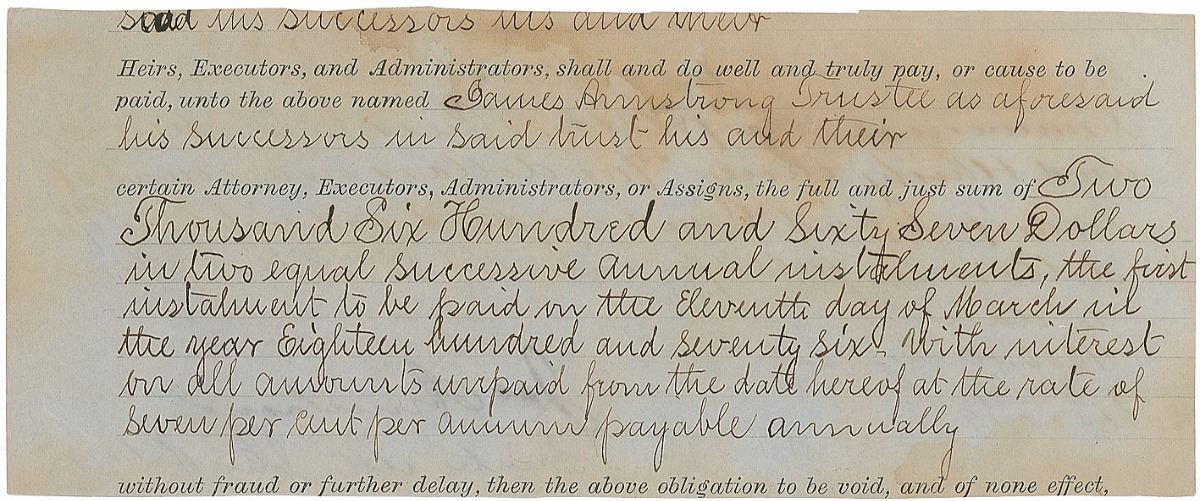 said his successors his and their
Heirs, Executors, and Administrators, shall and do well and truly pay, or cause to be
paid, unto the above named James Armstrong Trustee as aforesaid
his successors in said trust his and their
certain Attorney, Executors, Administrators, or Assigns, the full and just sum of Two
Thousand Six Hundred and Sixty Seven Dollars
in two equal successive annual instalments, the first
instalment to be paid on the Eleventh day of March in
the year Eighteen hundred and seventy six. With interest
on all amounts unpaid from the date hereof at the rate of
seven per cent per annum payable annually
without fraud or further delay, then the above obligation to be void, and of none effect,